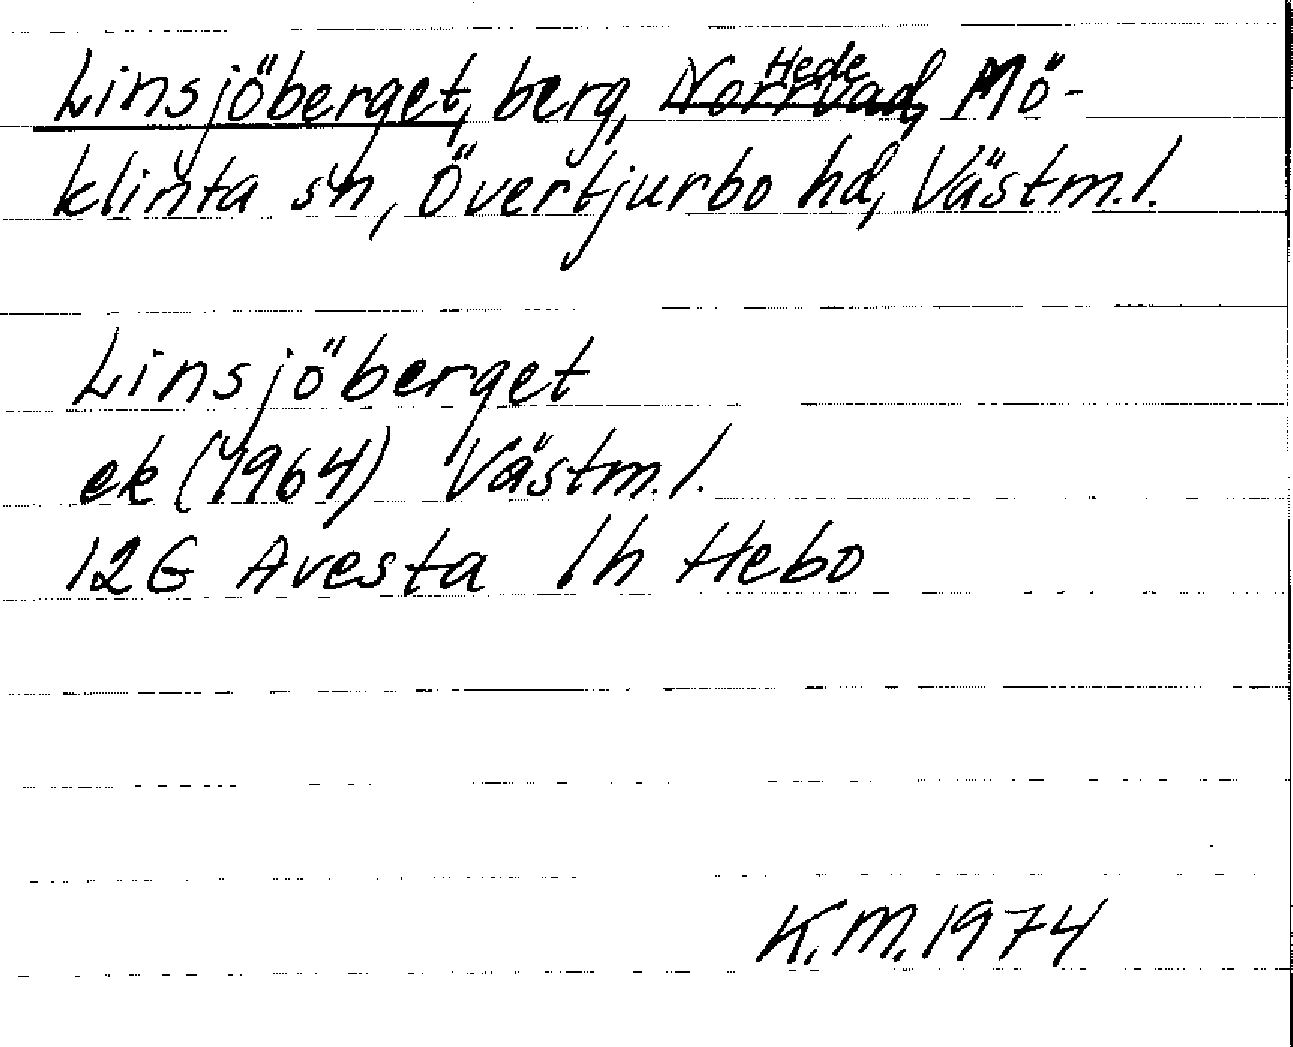 Linsjöberget, berg, Norrvad, Hede Mö-
klinta sn, Övertjurbo hd, Västm.l.
Linsjöberget
ek (1964) Västm.l.
12G Avesta 1h Hebo
K.M. 1974